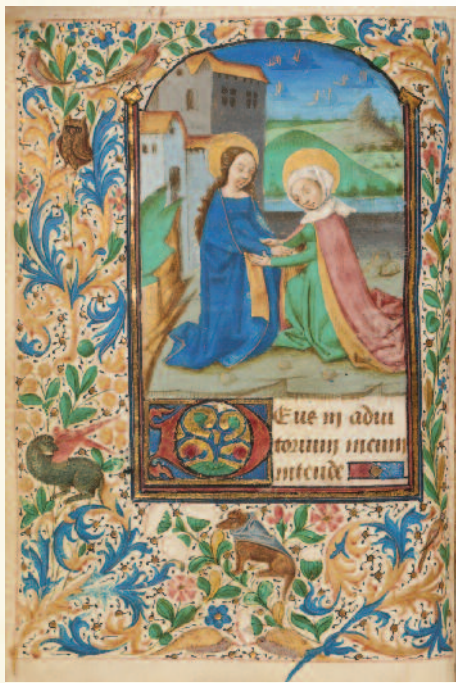 Deus in adiu
torium meum
intende